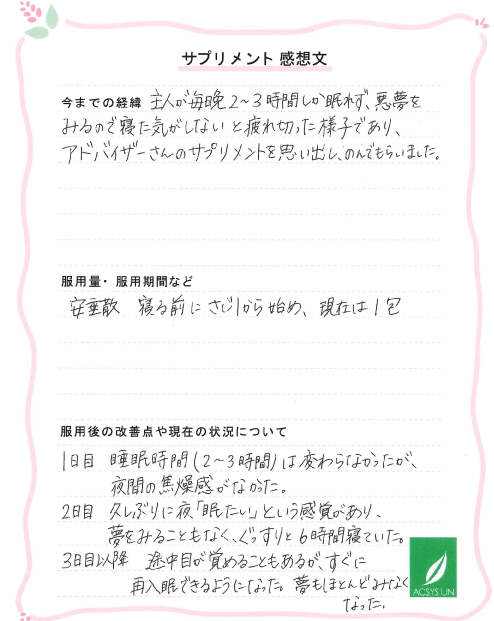 サプリメント 感想文
今までの経緯 主人が毎晩2〜3時間しか眠れず、悪夢を
みるので寝た気がしないと疲れ切った様子であり、
アドバイザーさんのサプリメントを思い出し、のんでもらいました。
服用量・服用期間など
安垂散 寝る前に さじ1から始め、現在は1包
服用後の改善点や現在の状況について
1日目 睡眠時間(2〜3時間)は変わらなかったが、
夜間の焦燥感がなかった。
2日目 久しぶりに夜「眠たい」という感覚があり、
夢をみることもなく、ぐっすりと6時間寝ていた。
3日目以降 途中目が覚めることもあるが、すぐに
再入眠できるようになった。夢もほとんどみなく
なった.
ACSYS UN